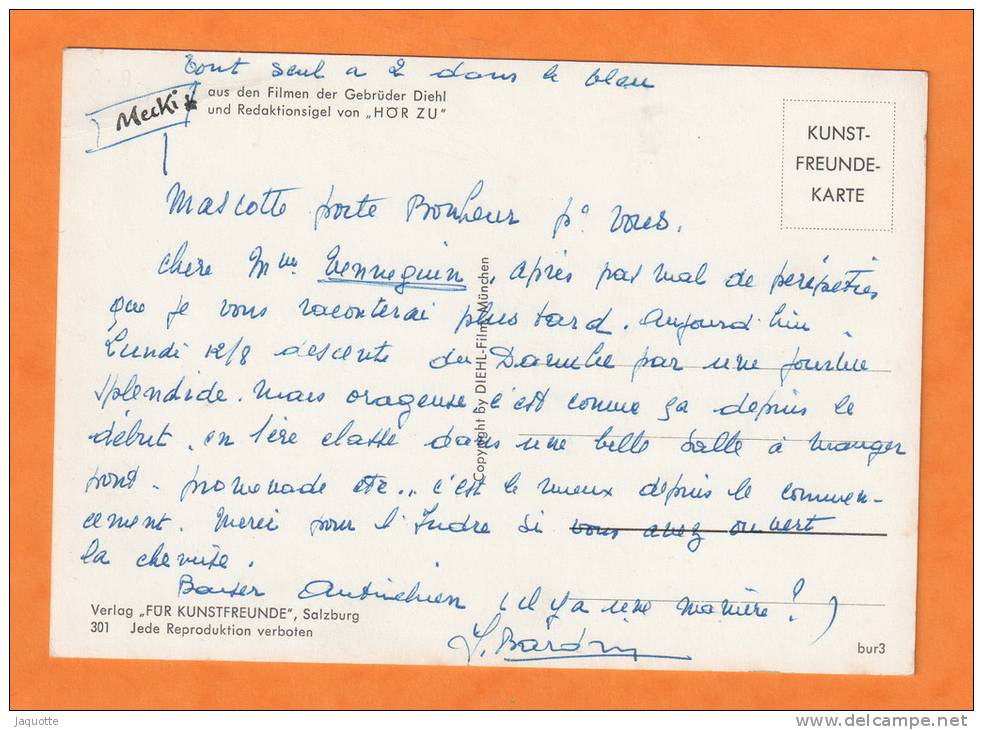 tout seul a 2 dans le bleu
Mecki * aus den Filmen der Gebrüder Diehl
und Redaktionsigel von „HÖR ZU"
KUNST-
FREUNDE-
KARTE
Mascotte porte Bonheur pr vous.
Chere Mme Hennequin, après pas mal de péripéties
que je vous raconterai plus tard. Aujourd'hui
Lundi 12/8 descente du Danube par une journée
splendide. mais orageuse c'est comme ça depuis le
début. en 1ère classe dans une belle salle à manger
pont. promenade etc... c'est le mieux depuis le commen-
cement. Merci pour l'Indre si vous avez ouvert
la chemise.
Baiser Autrichien (il y a une manière?)
Y. Bardin
Copyright by DIEHL-Film, München
Verlag „FÜR KUNSTFREUNDE", Salzburg
301 Jede Reproduktion verboten
bur3
Jaquotte
www.delcampe.net